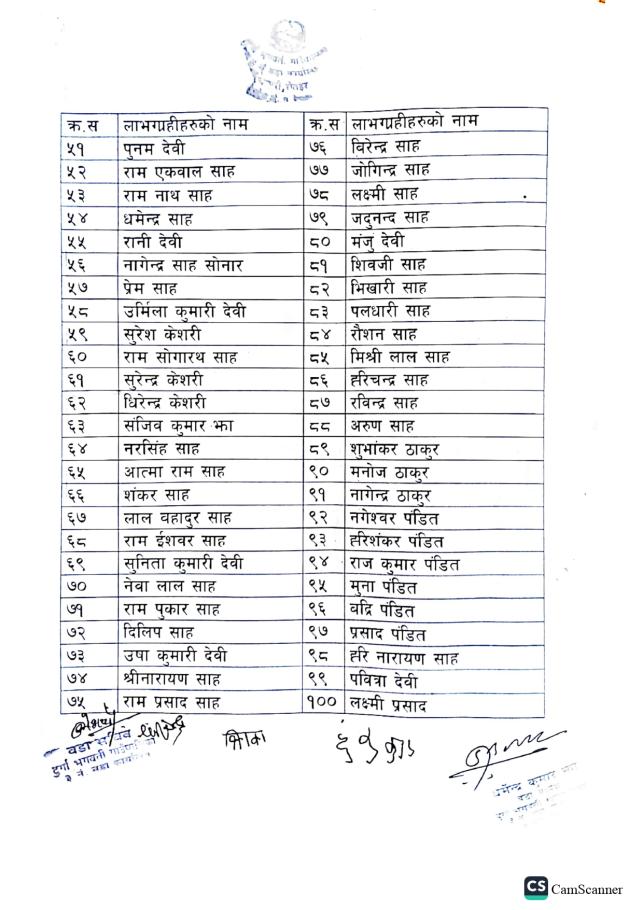 क्र.स लाभग्राहीहरुको नाम क्र.स लाभग्राहीहरुको नाम
५१ पुनम देवी ७६ विरेन्द्र साह
५२ राम एकवाल साह ७७ जोगिन्द्र साह
५३ राम नाथ साह ७८ लक्ष्मी साह
५४ धमेन्द्र साह ७९ जदुनन्द साह
५५ रानी देवी ८० मंजु देवी
५६ नागेन्द्र साह सोनार ८१ शिवजी साह
५७ प्रेम साह ८२ भिखारी साह
५८ उर्मिला कुमारी देवी ८३ पलधारी साह
५९ सुरेश केशरी ८४ रौशन साह
६० राम सोगारथ साह ८५ मिश्री लाल साह
६१ सुरेन्द्र केशरी ८६ हरिचन्द्र साह
६२ धिरेन्द्र केशरी ८७ रविन्द्र साह
६३ संजिव कुमार झा ८८ अरुण साह
६४ नरसिंह साह ८९ शुभांकर ठाकुर
६५ आत्मा राम साह ९० मनोज ठाकुर
६६ शंकर साह ९१ नागेन्द्र ठाकुर
६७ लाल वहादुर साह ९२ नगेश्वर पंडित
६८ राम ईशवर साह ९३ हरिशंकर पंडित
६९ सुनिता कुमारी देवी ९४ राज कुमार पंडित
७० नेवा लाल साह ९५ मुना पंडित
७१ राम पुकार साह ९६ वद्रि पंडित
७२ दिलिप साह ९७ प्रसाद पंडित
७३ उषा कुमारी देवी ९८ हरि नारायण साह
७४ श्रीनारायण साह ९९ पवित्रा देवी
७५ राम प्रसाद साह १०० लक्ष्मी प्रसाद
वडा सचिव
दुर्गा भगवती
धर्मेन्द्र कुमार
CS CamScanner